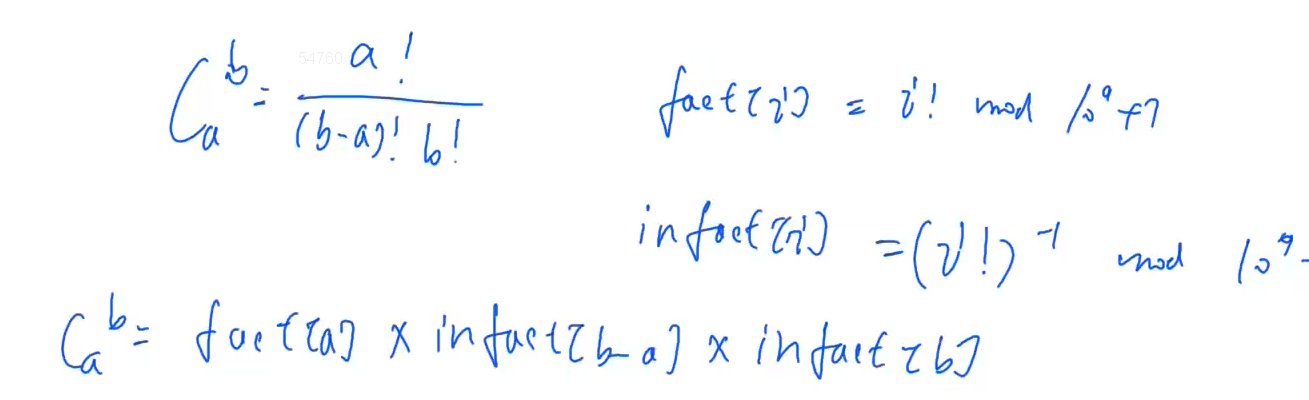 C_a^b = a! / (b-a)! b!
fact[i] = i! mod 10^9+7
infact[i] = (i!)^-1 mod 10^9-
C_a^b = fact[a] x infact[b-a] x infact[b]
54760